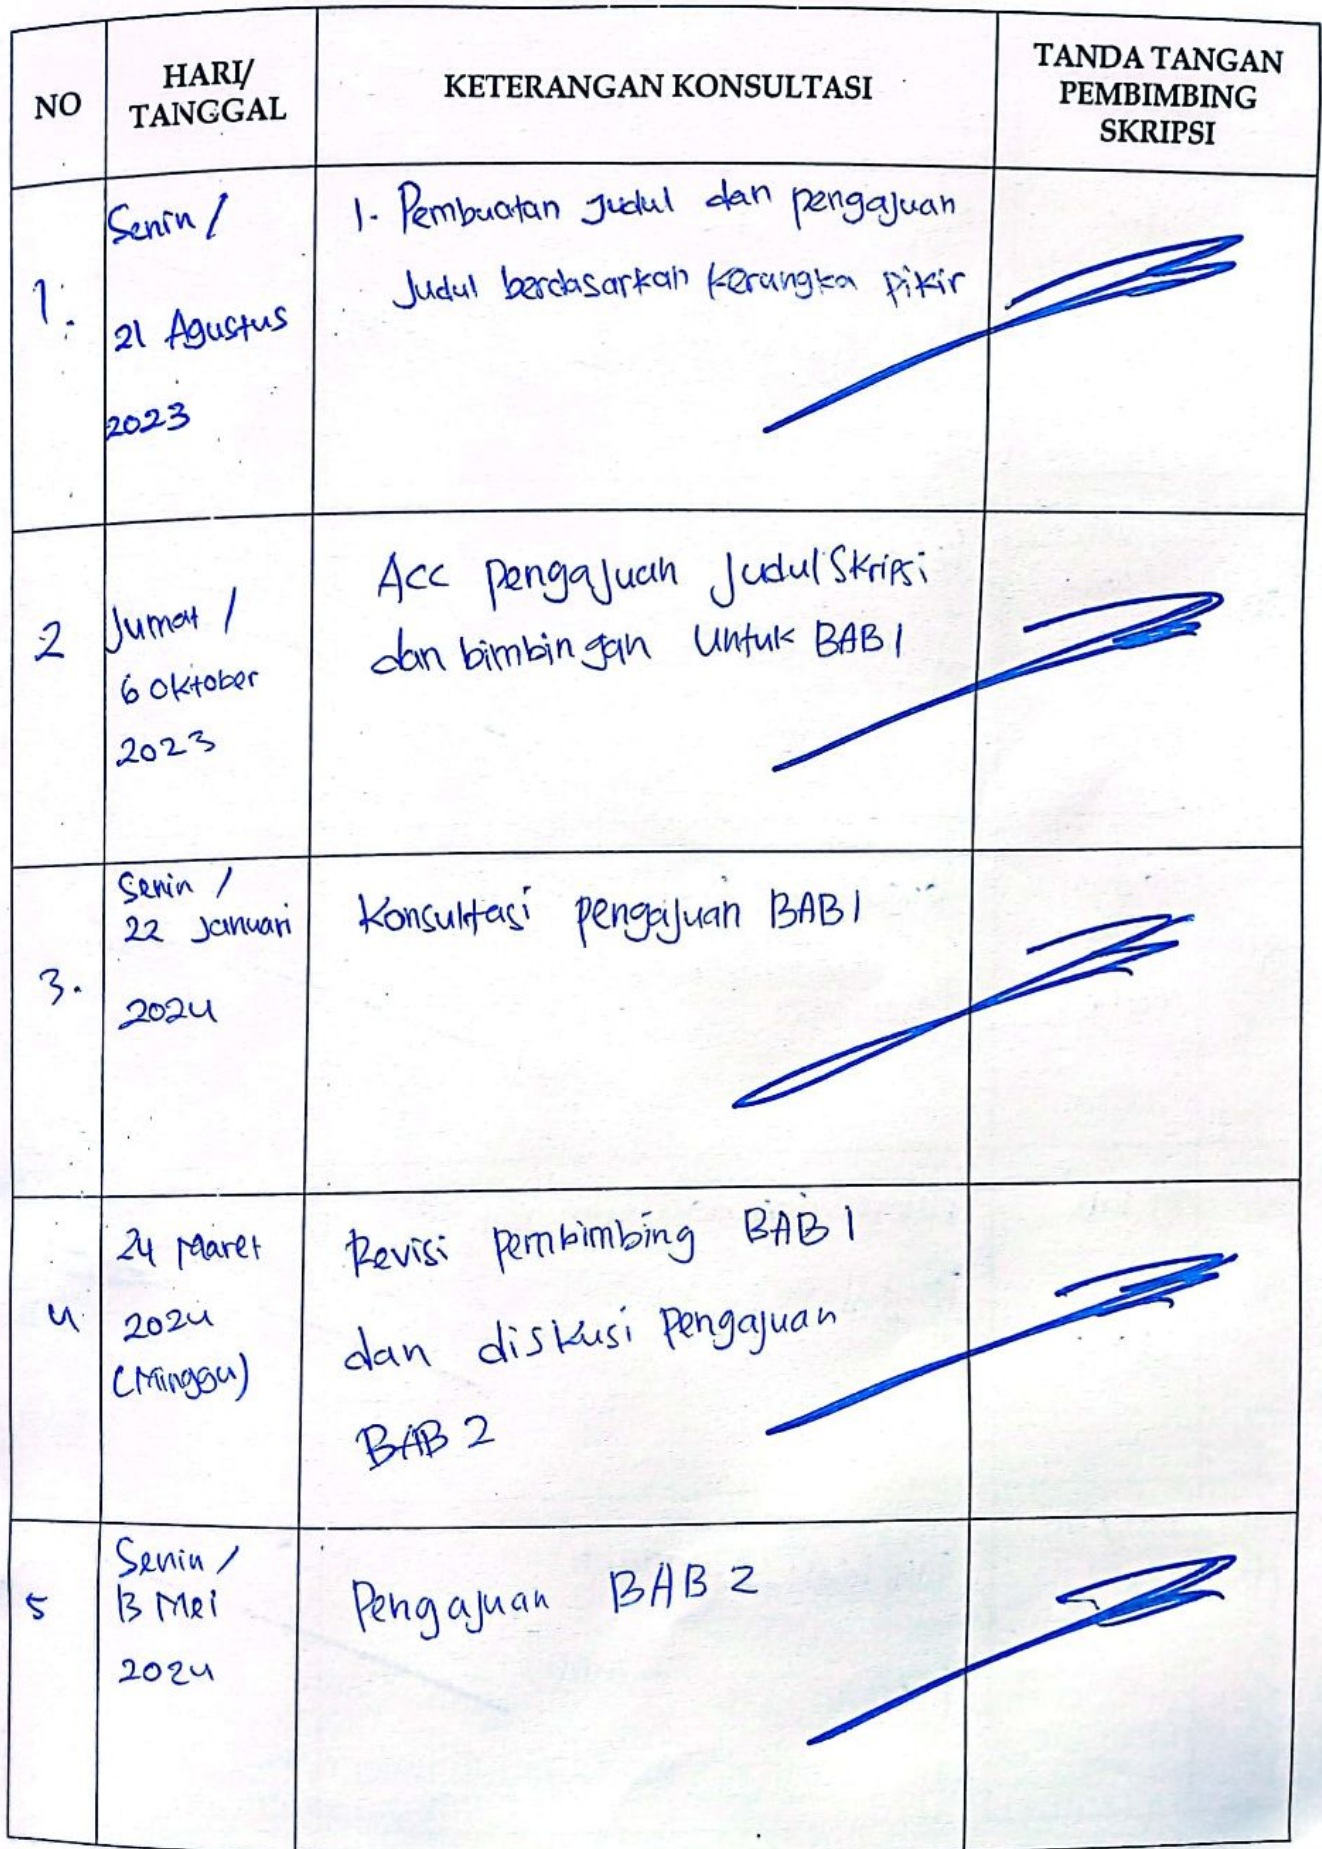 NO
HARI/
TANGGAL
KETERANGAN KONSULTASI
TANDA TANGAN
PEMBIMBING
SKRIPSI
1.
Senin /
21 Agustus
2023
1. Pembuatan Judul dan pengajuan
Judul berdasarkan kerangka pikir
2
Jumat /
6 Oktober
2023
Acc pengajuan Judul Skripsi
dan bimbingan untuk BAB 1
3.
Senin /
22 Januari
2024
Konsultasi pengajuan BAB 1
4
24 Maret
2024
(Minggu)
Revisi pembimbing BAB 1
dan diskusi Pengajuan
BAB 2
5
Senin /
13 Mei
2024
Pengajuan BAB 2